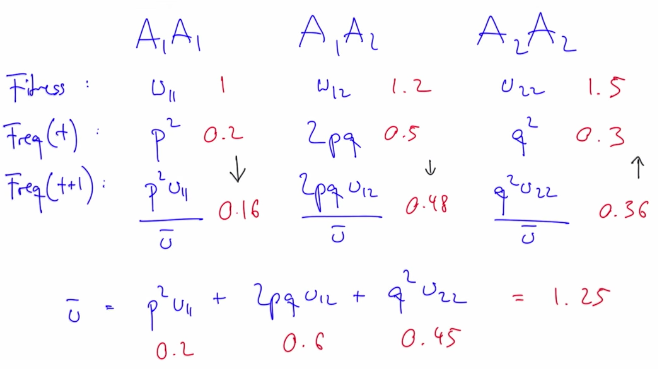 A₁A₁ A₁A₂ A₂A₂
Fitness : ω₁₁ 1 ω₁₂ 1.2 ω₂₂ 1.5
Freq(t) : p² 0.2 2pq 0.5 q² 0.3
↓ ↓ ↑
Freq(t+1) : p²ω₁₁/ω̅ 0.16 2pqω₁₂/ω̅ 0.48 q²ω₂₂/ω̅ 0.36
ω̅ = p²ω₁₁ + 2pqω₁₂ + q²ω₂₂ = 1.25
0.2 0.6 0.45